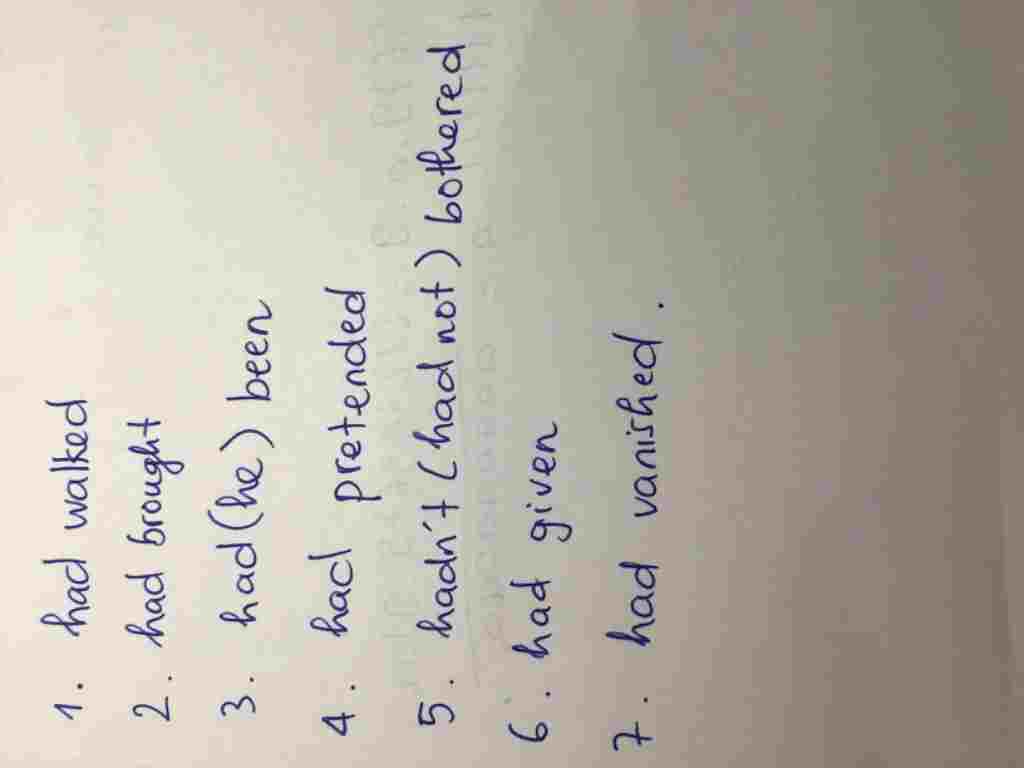 1. had walked
2. had brought
3. had (he) been
4. had pretended
5. hadn't (had not) bothered
6. had given
7. had vanished.